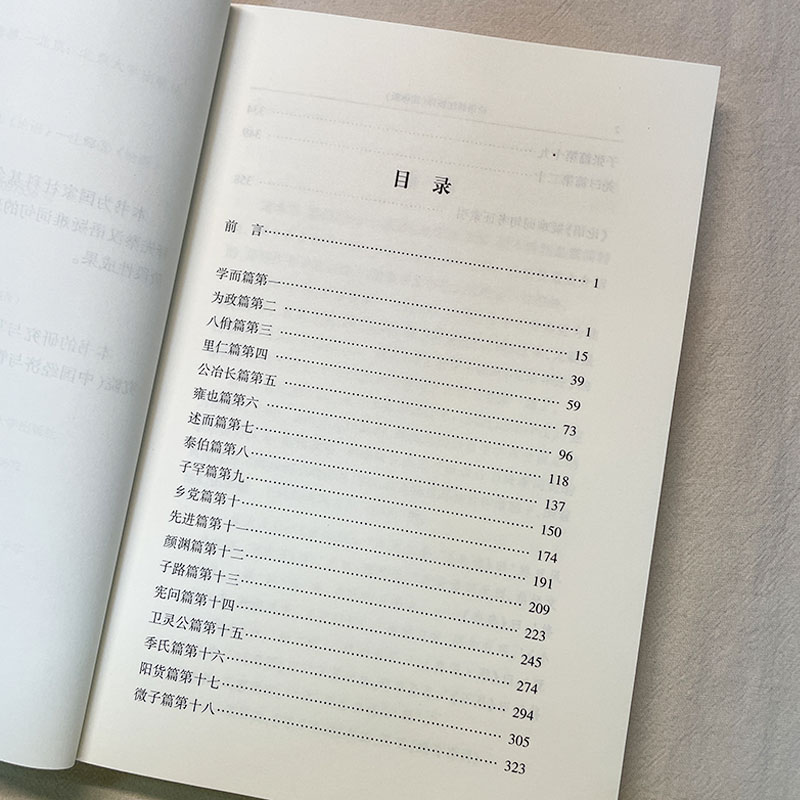 目 录
前 言 …… 1
学而篇第一 …… 1
为政篇第二 …… 15
八佾篇第三 …… 39
里仁篇第四 …… 59
公冶长篇第五 …… 73
雍也篇第六 …… 96
述而篇第七 …… 118
泰伯篇第八 …… 137
子罕篇第九 …… 150
乡党篇第十 …… 174
先进篇第十一 …… 191
颜渊篇第十二 …… 209
子路篇第十三 …… 223
宪问篇第十四 …… 245
卫灵公篇第十五 …… 274
季氏篇第十六 …… 294
阳货篇第十七 …… 305
微子篇第十八 …… 323